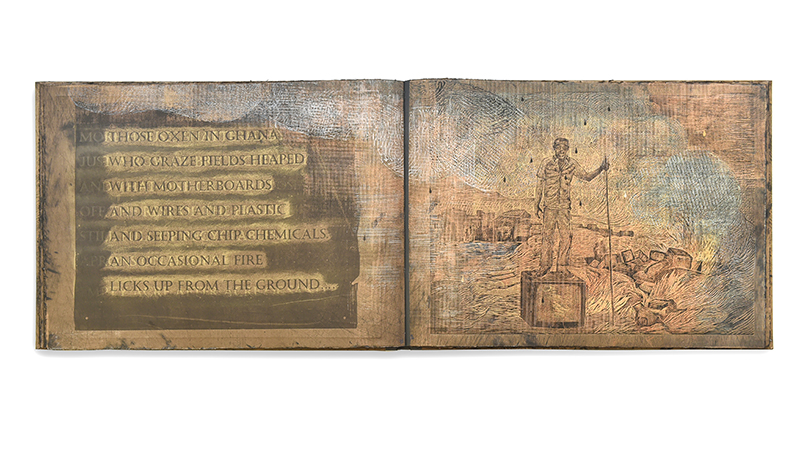 THOSE OXEN IN GHANA
WHO GRAZE FIELDS HEAPED
WITH MOTHERBOARDS
AND WIRES AND PLASTIC
AND SEEPING CHIP CHEMICALS,
AN OCCASIONAL FIRE
LICKS UP FROM THE GROUND . . .